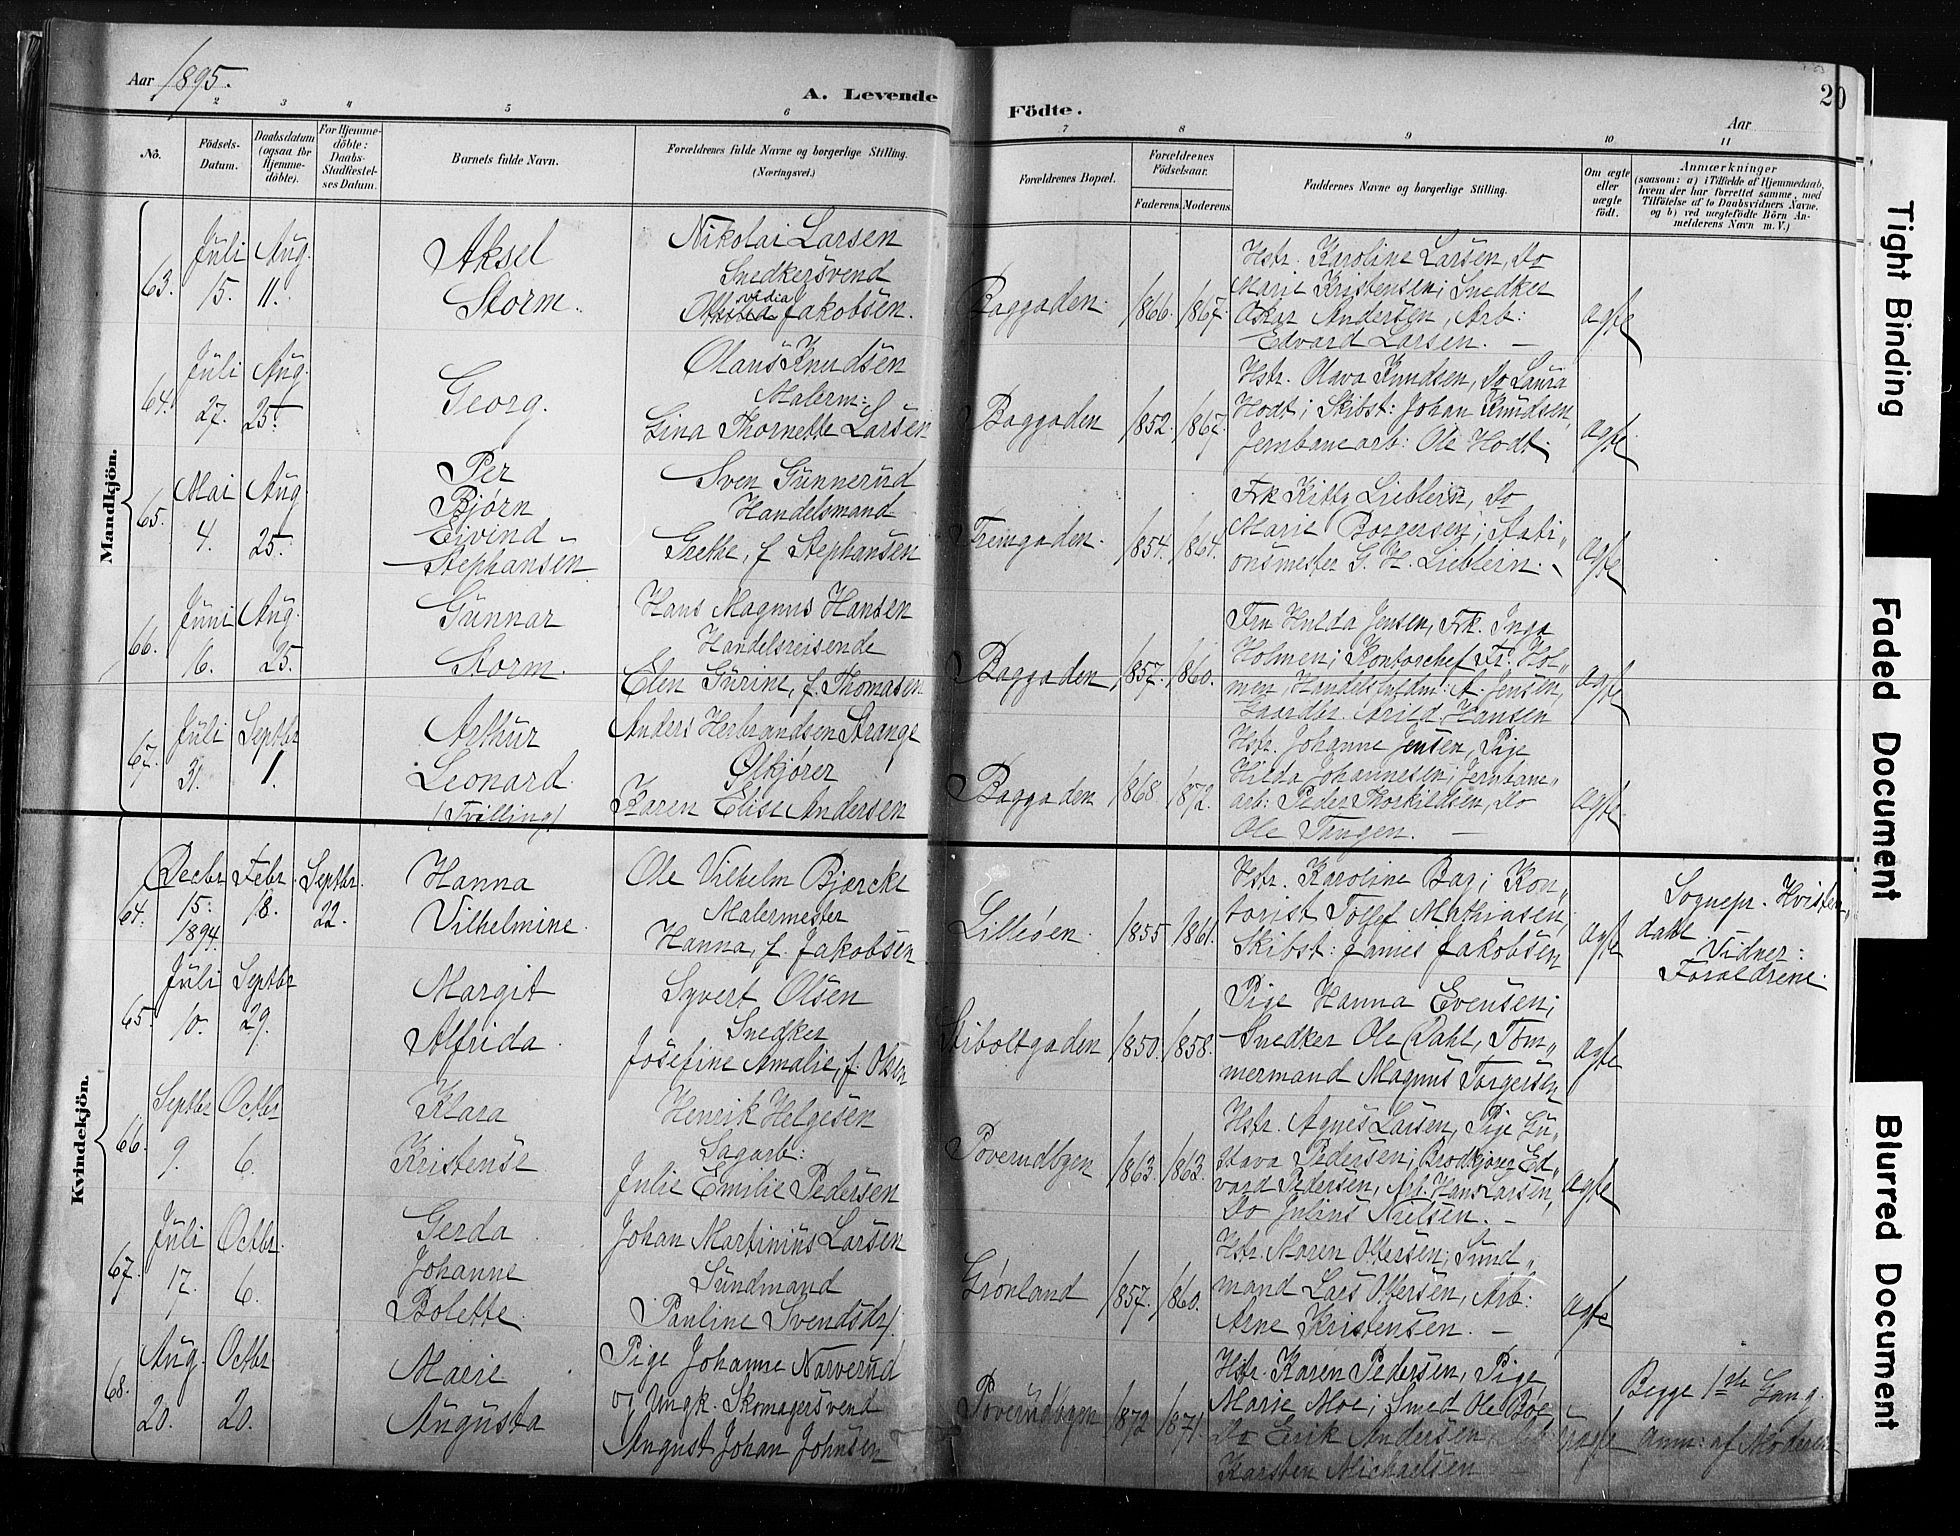 Aar 1895.
A. Levende
Födte.
20
Aar
1 2 3 4 5 6 7 8 9 10 11
No.
Födsels-
Datum.
Daabsdatum
(ogsaa for
Hjemme-
döbte).
For Hjemme-
döbte:
Daabs-
Stadfæstel-
ses Datum.
Barnets fulde Navn.
Forældrenes fulde Navne og borgerlige Stilling.
(Næringsvei.)
Forældrenes Bopæl.
Forældrenes
Födselsaar.
Faderens. Moderens.
Faddernes Navne og borgerlige Stilling.
Om ægte
eller
uægte
født.
Anmærkninger
(saasom: a) i Tilfælde af Hjemmedaab,
hvem der har forrettet samme, med
Tilföielse af to Daabsvidners Navne.
og b) ved uægtefödte Börn An-
melderens Navn m. V.)
Mandkjön.
63.
Juli
15.
Aug.
11.
Aksel
Storm.
Nikolai Larsen
Snedkersvend
vidia
Jakobsen.
Baggaden.
1866. 1867.
Hstr. Karoline Larsen, Do
Marie Kristensen; Snedker
Oskar Andersen, Arb:
Edvard Larsen. —
ægte
64.
Juli
27.
Aug.
25.
Georg.
Olaus Knudsen
Malerm:
Gina Thornette Larsen
Baggaden
1852. 1867.
Hstr. Olava Knudsen, Do Laura
Hodt; Skibst: Johan Knudsen,
Jernbanearb: Ole Hodt.
ægte
65.
Mai
4.
Aug
25.
Per
Bjørn
Eivind
Stephansen.
Sven Gunnerud
Handelsmand
Grethe, f. Stephansen
Fremgaden.
1854. 1864.
Frk Kitty Lieblein, Do
Marie Borgersen; Stati-
onsmester G. H. Lieblein.
ægte
66.
Juni
16.
Aug.
25.
Gunnar
Storm.
Hans Magnus Hansen
Handelsreisende
Elen Gurine, f. Thomasen
Baggaden
1857. 1860.
Fru Hulda Jensen, Frk. Inga
Holmen; Kontorchef Fr. Hol-
men, Handelsfuldm: A. Jensen,
Gaardbr. Arild Hansen
ægte
67.
Juli
31.
Septbr
1.
Arthur
Leonard.
(Tvilling)
Anders Herbrandsen Strange
Ølkjører
Karen Elise Andersen
Baggaden
1868 1872.
Hstr. Johanne Jensen, Pige
Hilda Johannesen; Jernbane-
arb: Peder Thorkildsen, Do
Ole Tangen. —
ægte
Kvindekjön.
64.
Decbr
15.
1894.
Febr
18.
Septbr.
22.
Hanna
Vilhelmine.
Ole Vilhelm Bjærcke
Malermester
Hanna, f. Jakobsen
Lilleøen.
1855 1861.
Hstr. Karoline Bay; Kon-
torist Tollef Mathiasen;
Skibst: James Jakobsen
ægte
Sognepr. Hvisten-
dahl
Vidner:
Forældrene.
65.
Juli
10.
Septbr
29.
Margit
Alfrida.
Syvert Olsen
Snedker
Josefine Amalie, f. Olsen
Stiboltgaden
1850. 1858.
Pige Hanna Evensen;
Snedker Ole Dahl, Tøm-
mermand Magnus Torgersen
ægte
66.
Septbr
9.
Octbr
6.
Klara
Kristense
Henrik Helgesen
Sagarb:
Julie Emilie Pedersen
Poverudbyen
1863. 1863.
Hstr. Agnes Larsen, Pige Gu-
stava Pedersen; Brødkjører Ed-
vard Pedersen, Arb. Hans Larsen,
Do Julius Nielsen. —
ægte
67.
Juli
17.
Octbr.
6.
Gerda
Johanne
Bolette.
Johan Martinius Larsen
Sundmand
Pauline Svendsdr.
Grønland
1857. 1860.
Hstr. Maren Ottersen; Sund-
mand Lars Ottersen, Arb:
Arne Kristensen. —
ægte
68.
Aug.
20.
Octbr
20.
Marie
Augusta
Pige Johanne Narverud
og Ungk. Skomagersvend
August Johan Johnsen
Poverudbyen
1872 1871.
Hstr. Karen Pedersen, Pige
Marie Moe; Smed Ole Boe,
Do Erik Andersen,
Karsten Michaelsen —
uægte
Begge 1ste Gang.
Anm: af Moderen
Tight Binding
Faded Document
Blurred Document